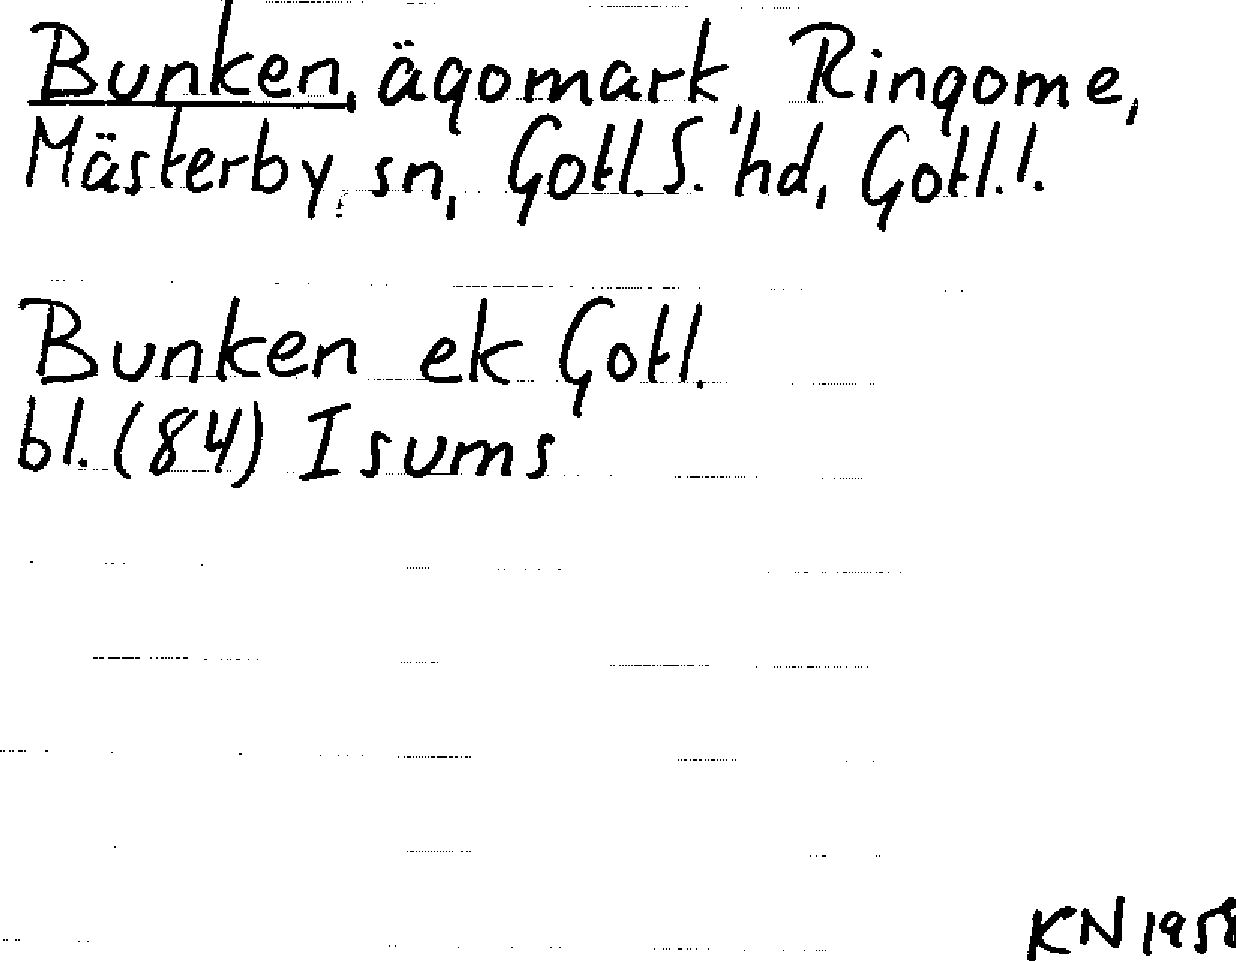 Bunken, ägomark, Ringome,
Mästerby sn, Gotl. S. hd, Gotl. l.
Bunken ek Gotl.
bl. (84) Isums
KN 1958